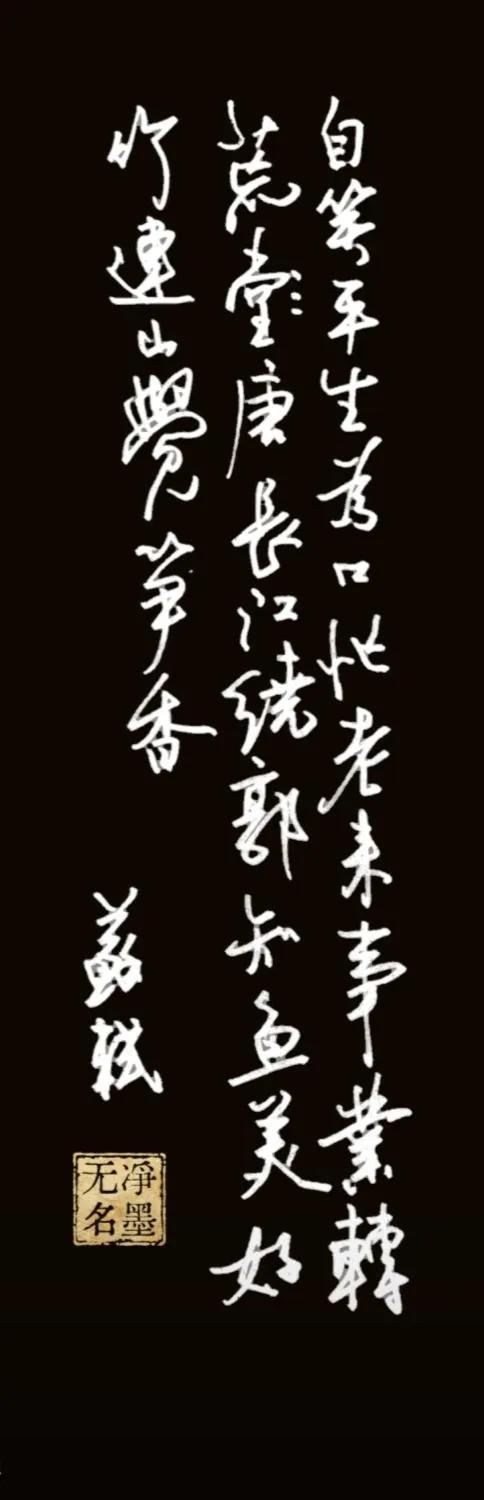 自笑平生為口忙老来事業轉
荒堂唐長江繞郭知魚美好
竹連山覺笋香
蘇軾
凈墨
无名